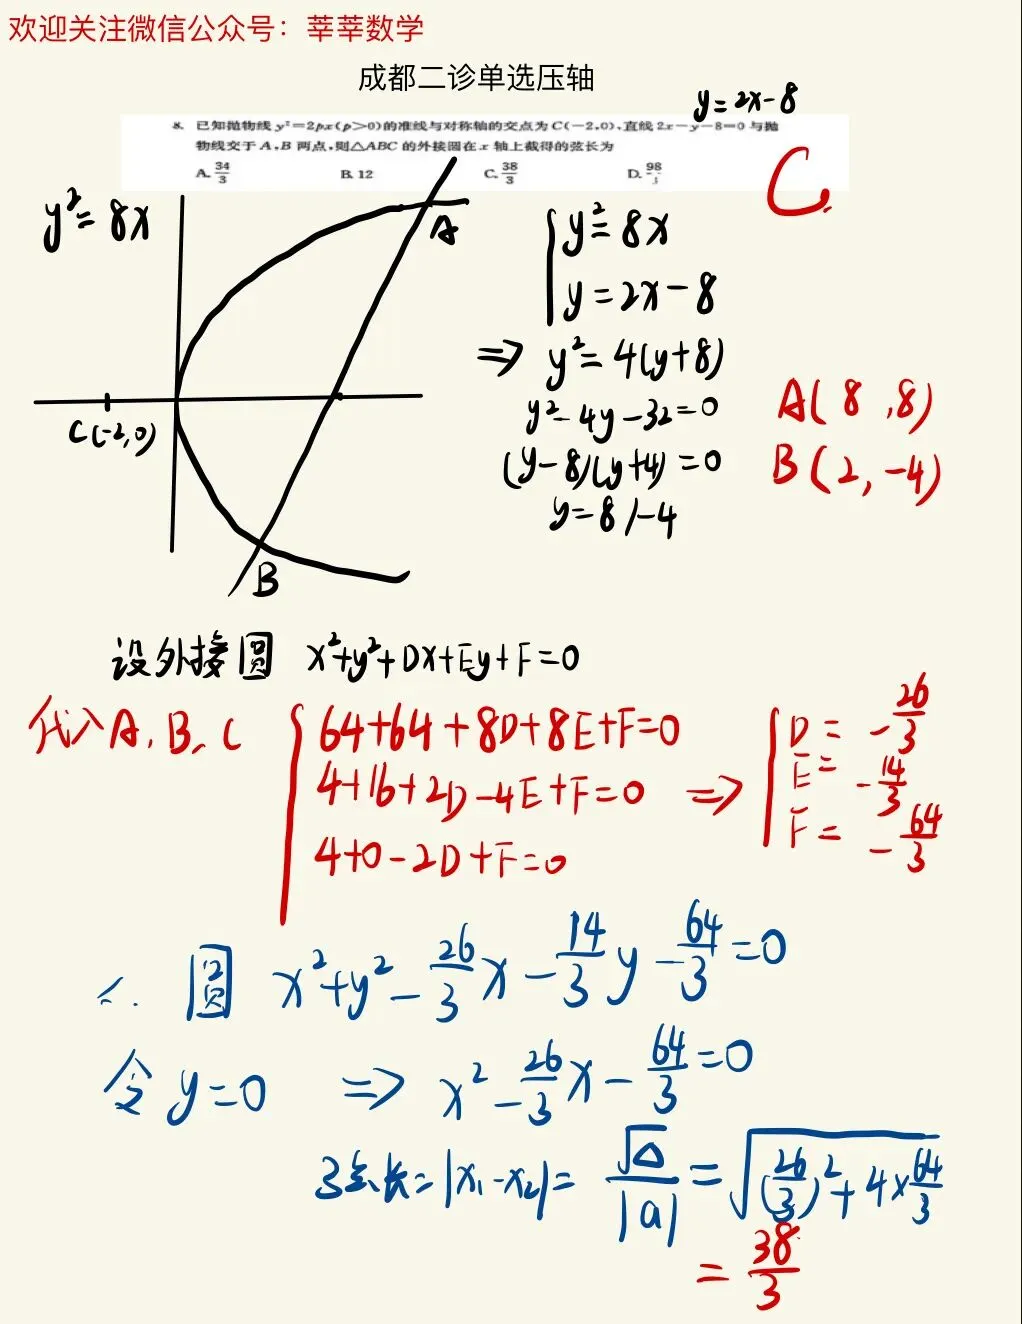 欢迎关注微信公众号：莘莘数学
成都二诊单选压轴
y=2x-8
8. 已知抛物线 y²=2px(p>0)的准线与对称轴的交点为C(-2,0),直线 2x-y-8=0 与抛
物线交于 A,B 两点,则△ABC 的外接圆在 x 轴上截得的弦长为
A. 34/3 B. 12 C. 38/3 D. 98/3
C.
y²=8x
A
C(-2,0)
B
y²=8x
y=2x-8
⇒ y²=4(y+8)
y²-4y-32=0
(y-8)(y+4)=0
y=8/-4
A(8,8)
B(2,-4)
设外接圆 x²+y²+Dx+Ey+F=0
代入A、B、C
64+64+8D+8E+F=0
4+16+2D-4E+F=0 ⇒
4+0-2D+F=0
D=-26/3
E=-14/3
F=-64/3
∴ 圆 x²+y²-26/3x-14/3y-64/3=0
令 y=0 ⇒ x²-26/3x-64/3=0
弦长=|x₁-x₂|=√Δ/|a|=√((26/3)²+4×64/3)
=38/3